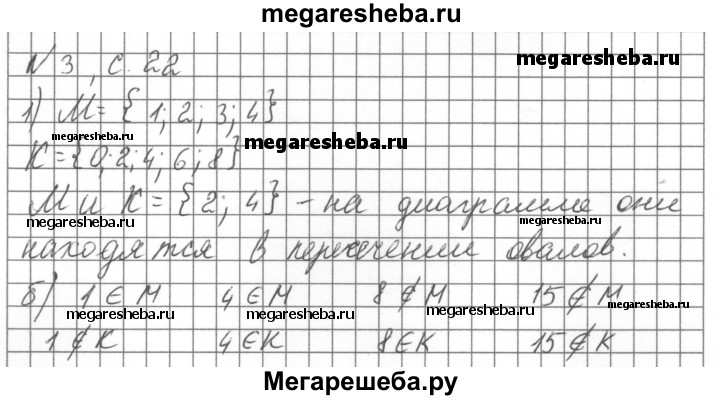 megaresheba.ru
№3, с. 22
megaresheba.ru
1) М = {1; 2; 3; 4}
megaresheba.ru
megaresheba.ru
К = {0; 2; 4; 6; 8}
М и К = {2; 4} - на диаграмме они
megaresheba.ru
megaresheba.ru
находятся в пересечении овалов.
б) 1 ∈ М 4 ∈ М 8 ∉ М 15 ∉ М
megaresheba.ru
megaresheba.ru
megaresheba.ru
1 ∉ К 4 ∈ К 8 ∈ К 15 ∉ К
Мегарешеба.ру